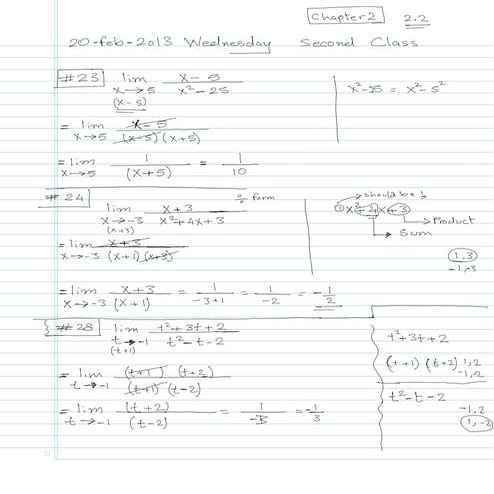 Chapter 2 2.2
20-feb-2013 Wednesday Second Class
#23 lim x→5 (x-5) x-5 / x²-25
x²-25 = x²-5²
= lim x→5 x-5 / (x-5)(x+5)
= lim x→5 1 / (x+5) = 1/10
#24 0/0 form
lim x→-3 (x+3) x+3 / x²+4x+3
should be 1
①x²+4x+3
→Product
→Sum
= lim x→-3 x+3 / (x+1)(x+3)
1,3
-1,-3
= lim x→-3 x+3 / (x+1) = 1/-3+1 = 1/-2 = -1/2
#28 lim t→-1 (t+1) t²+3t+2 / t²-t-2
t²+3t+2
(t+1)(t+2) 1,2
-1,-2
= lim t→-1 (t+1)(t+2) / (t+1)(t-2)
t²-t-2
-1,2
1,-2
= lim t→-1 (t+2) / (t-2) = 1/-3 = -1/3